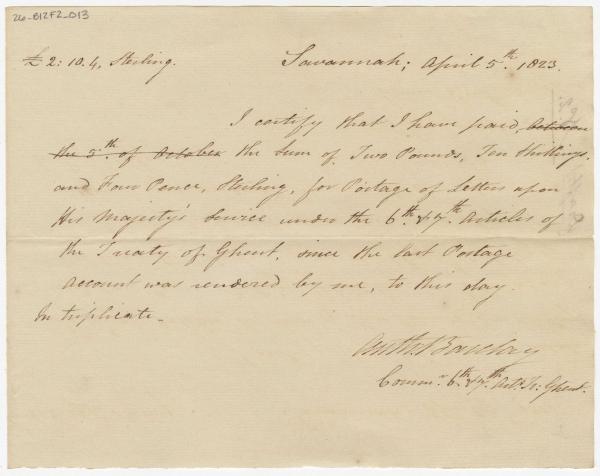 26-B12F2-013
£ 2: 10. 4, Sterling.
Savannah; April 5.th 1823.
I certify that I have paid, between
the 5.th of October the Sum of Two Pounds, Ten Shillings,
and Four Pence, Sterling, for Postage of Letters upon
His Majesty's Service under the 6.th & 7.th Articles of
the Treaty of Ghent, since the last Postage
account was rendered by me, to this day.
In triplicate.
Anth. Barclay
Commr. 6.th & 7.th Art: Tr: Ghent.